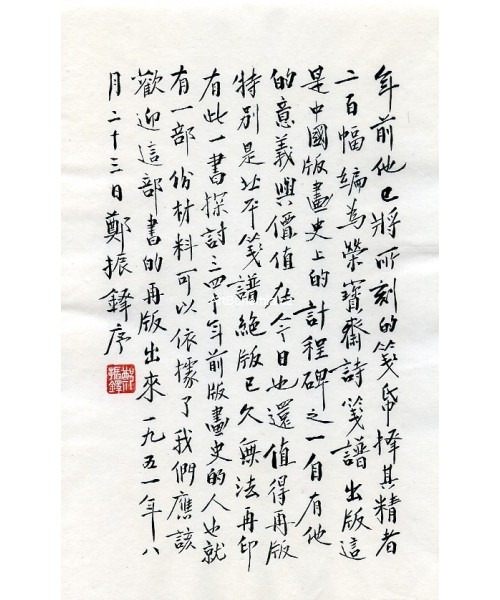 年前他已將所刻的箋帋擇其精者
二百幅編為榮寶齋詩箋譜出版這
是中國版畫史上的計程碑之一自有他
的意義與價值在今日也還值得再版
特別是北平箋譜絕版已久無法再印
有此一書探討三四十年前版畫史的人也就
有一部份材料可以依據了我們應該
歡迎這部書的再版出來一九五一年八
月二十三日鄭振鐸序